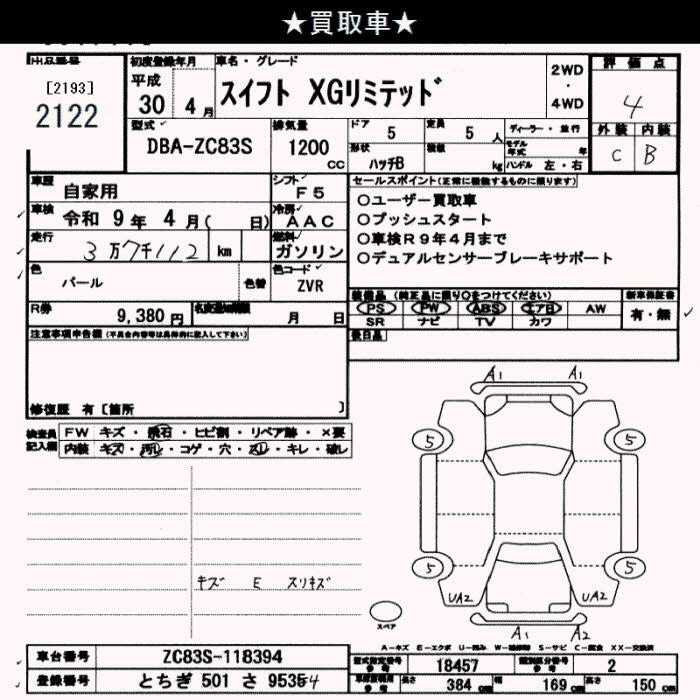 ★買取車★
出品番号
[2193]
2122
初度登録年月
平成 30 4 月
車名・グレード
スイフト XGリミテッド
2WD
・
4WD
評価点
4
外装 内装
C B
型式
DBA-ZC83S
排気量
1200 CC
ドア 5
定員 5 人
形状 ハッチB
積載 kg
ディーラー・並行
モデル年式 年
ハンドル 左・右
車歴 自家用
シフト F5
車検 令和 9 年 4 月( 日)
冷房 AAC
走行 3万7千112 km
燃料 ガソリン
色 パール
色替
色コード ZVR
R券 9,380 円
名変期限 月 日
セールスポイント(正常に機能するものに限ります)
○ユーザー買取車
○プッシュスタート
○車検R9年4月まで
○デュアルセンサーブレーキサポート
装備品 (純正品に限り○をつけてください)
PS PW ABS エアB AW
SR ナビ TV カワ
新車保証書
有・無
後日品
注意事項申告欄(不具合内容等は具体的に記入して下さい)
修復歴 有〔箇所 〕
検査員記入欄
FW キズ・飛石・ヒビ割・リペア跡・×要
内装 キズ・汚レ・コゲ・穴・スレ・キレ・破レ
キズ E スリキズ
A1 A1
5 5
5 5
UA2 UA2
A1 A2
スペア
A-キズ E-エクボ U-凹み W-補修跡 S-サビ C-腐食 XX-交換済
車台番号 ZC83S-118394
登録番号 とちぎ 501 さ 9535 4
型式指定番号 参考 18457
類別区分番号 参考 2
車両寸法 参考 長さ 384 cm 幅 169 cm 高さ 150 cm